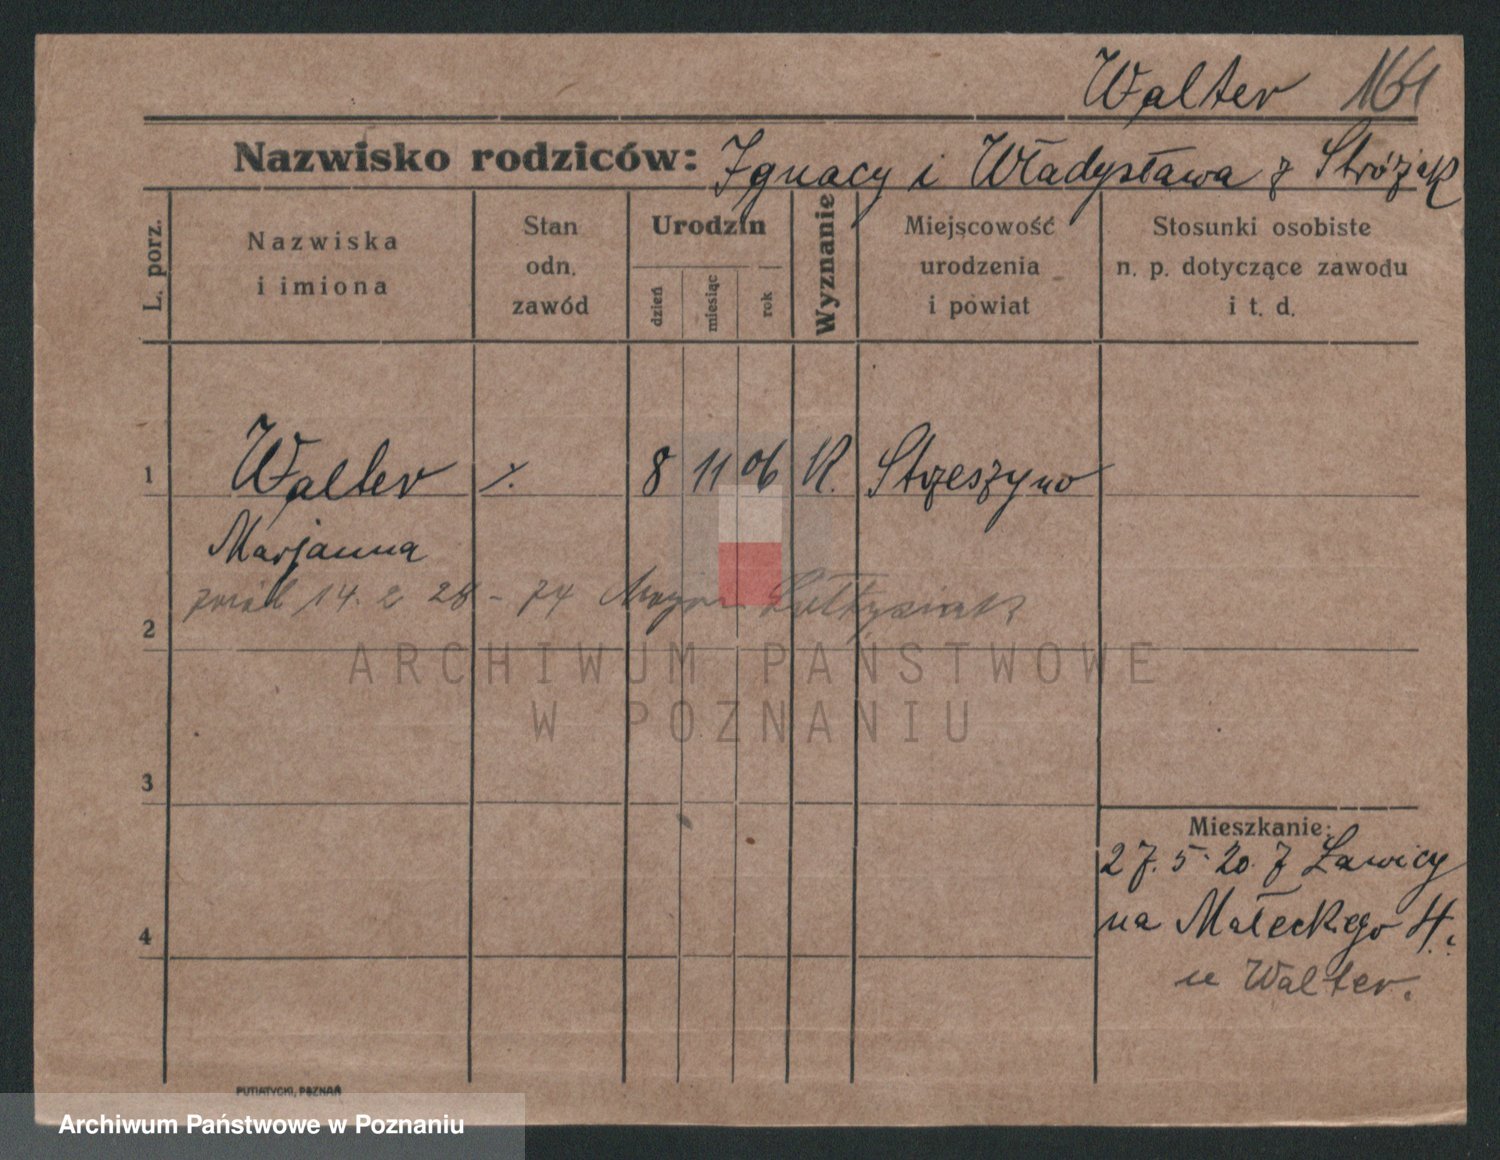 Walter 164
Nazwisko rodziców: Ignacy i Władysława z Stróżak
L. porz.
Nazwiska
i imiona
Stan
odn.
zawód
Urodzin
dzień
miesiąc
rok
Wyznanie
Miejscowość
urodzenia
i powiat
Stosunki osobiste
n. p. dotyczące zawodu
i t. d.
1 Walter %. 8 11 06 K. Strzeszyno
Marjanna
14. 2 28 - 74
2
3
4
Mieszkanie:
27. 5. 20. z Ławicy
na Małeckiego 4.
u Walter.
PUTIATYCKI, POZNAŃ
ARCHIWUM PAŃSTWOWE
W POZNANIU
Archiwum Państwowe w Poznaniu